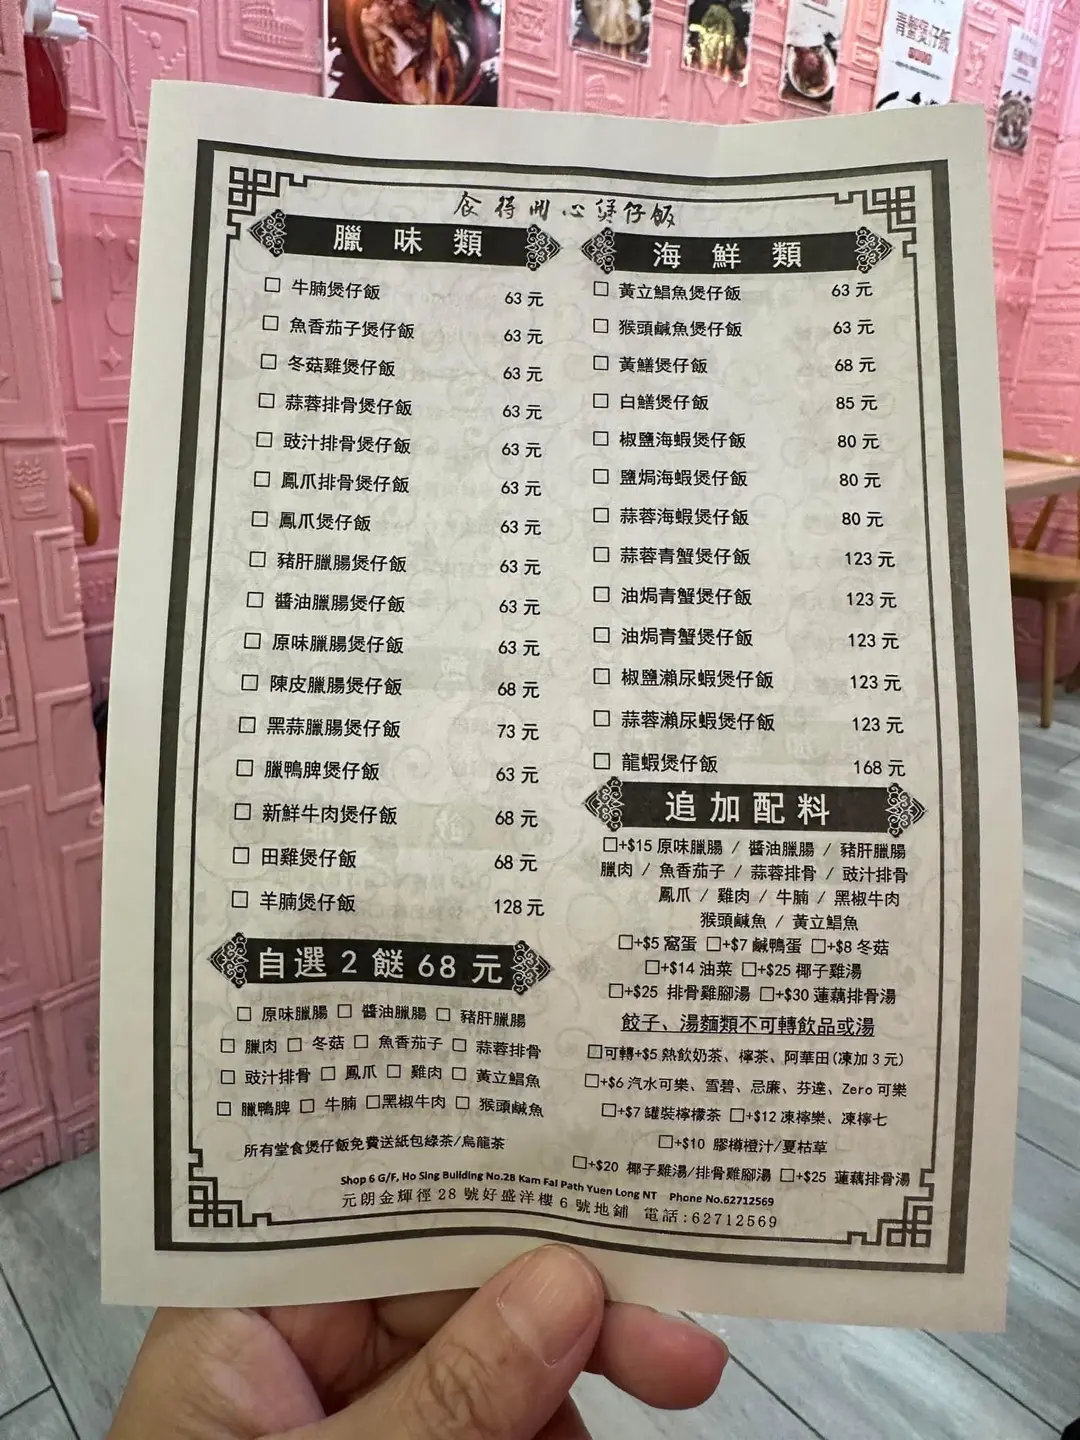 青蟹煲仔飯
食得開心煲仔飯
臘味類
牛腩煲仔飯 63元
魚香茄子煲仔飯 63元
冬菇雞煲仔飯 63元
蒜蓉排骨煲仔飯 63元
豉汁排骨煲仔飯 63元
鳳爪排骨煲仔飯 63元
鳳爪煲仔飯 63元
豬肝臘腸煲仔飯 63元
醬油臘腸煲仔飯 63元
原味臘腸煲仔飯 63元
陳皮臘腸煲仔飯 68元
黑蒜臘腸煲仔飯 73元
臘鴨脾煲仔飯 63元
新鮮牛肉煲仔飯 68元
田雞煲仔飯 68元
羊腩煲仔飯 128元
自選2餸68元
原味臘腸 醬油臘腸 豬肝臘腸
臘肉 冬菇 魚香茄子 蒜蓉排骨
豉汁排骨 鳳爪 雞肉 黃立鯧魚
臘鴨脾 牛腩 黑椒牛肉 猴頭鹹魚
所有堂食煲仔飯免費送紙包綠茶/烏龍茶
海鮮類
黃立鯧魚煲仔飯 63元
猴頭鹹魚煲仔飯 63元
黃鱔煲仔飯 68元
白鱔煲仔飯 85元
椒鹽海蝦煲仔飯 80元
鹽焗海蝦煲仔飯 80元
蒜蓉海蝦煲仔飯 80元
蒜蓉青蟹煲仔飯 123元
油焗青蟹煲仔飯 123元
油焗青蟹煲仔飯 123元
椒鹽瀨尿蝦煲仔飯 123元
蒜蓉瀨尿蝦煲仔飯 123元
龍蝦煲仔飯 168元
追加配料
+$15 原味臘腸 / 醬油臘腸 / 豬肝臘腸
臘肉 / 魚香茄子 / 蒜蓉排骨 / 豉汁排骨
鳳爪 / 雞肉 / 牛腩 / 黑椒牛肉
猴頭鹹魚 / 黃立鯧魚
+$5 窩蛋 +$7 鹹鴨蛋 +$8 冬菇
+$14 油菜 +$25 椰子雞湯
+$25 排骨雞腳湯 +$30 蓮藕排骨湯
餃子、湯麵類不可轉飲品或湯
可轉+$5 熱飲奶茶、檸茶、阿華田(凍加3元)
+$6 汽水可樂、雪碧、忌廉、芬達、Zero可樂
+$7 罐裝檸檬茶 +$12 凍檸樂、凍檸七
+$10 膠樽橙汁/夏枯草
+$20 椰子雞湯/排骨雞腳湯 +$25 蓮藕排骨湯
Shop 6 G/F, Ho Sing Building No.28 Kam Fai Path Yuen Long NT Phone No.62712569
元朗金輝徑28號好盛洋樓6號地鋪 電話:62712569